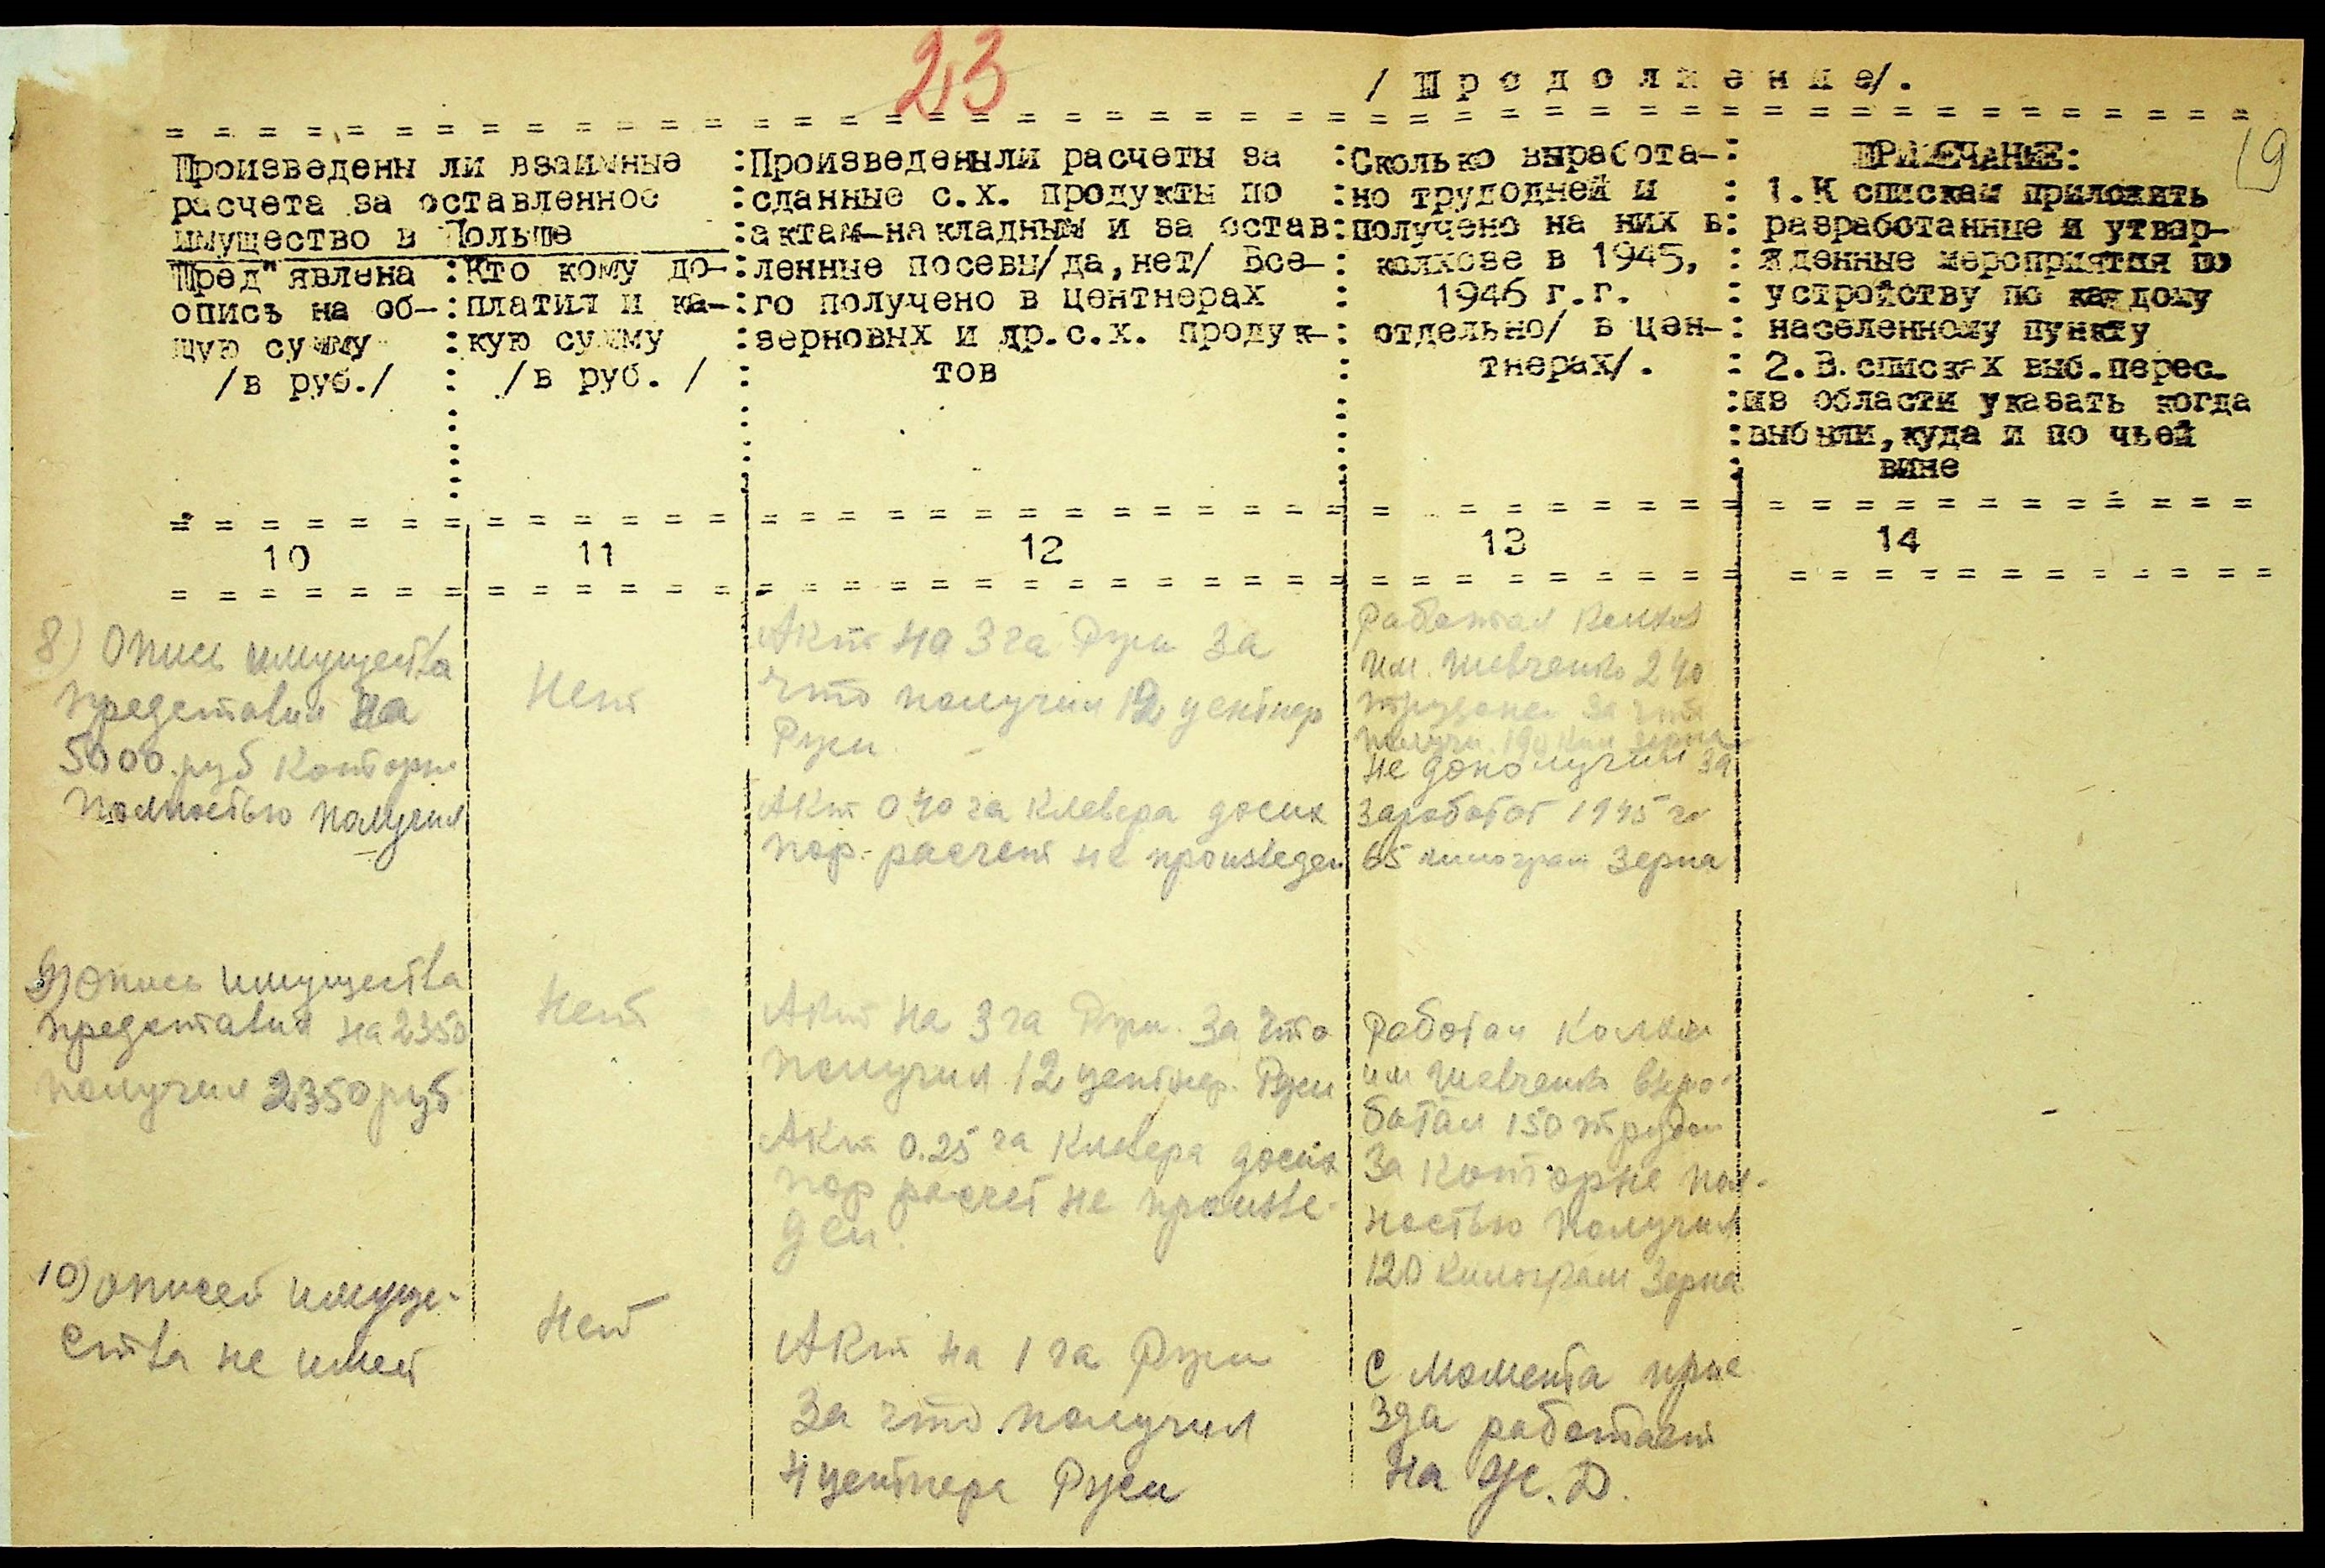 23
/ П р о д о л ж е н и е/.
19
Произведены ли взаимные
расчета за оставленное
имущество в Польше
Пред"явлена
опись на об-
щую сумму
/в руб./
Кто кому до-
платил и ка-
кую сумму
/в руб. /
Произведены ли расчеты за
сданные с.х. продукты по
актам-накладным и за остав
ленные посевы/да,нет/ Все-
го получено в центнерах
зерновых и др.с.х. продук-
тов
Сколько выработа-
но трудодней и
получено на них в
колхозе в 1945,
1946 г.г.
отдельно/ в цен-
тнерах/.
ПРИМЕЧАНИЕ:
1.К спискам приложить
разработанные и утвер-
жденные мероприятия по
устройству по каждому
населенному пункту
2.В списках выб.перес.
из области указать когда
выбыли,куда и по чьей
вине
10 11 12 13 14
8) Опись имущества
представил на
5000 руб которые
полностью получил
Нет
Акт на 3 га Ржи за
что получил 12 центнер
Ржи.
Акт 0.40 га Клевера досих
пор расчет не произведен
Работал Колхоз
им. Шевченко 240
трудоней за что
получ. 190 кил зерна
не дополучил за
заработот 1945 го
65 килограм зерна
9) Опись имущества
представил на 2350
получил 2350 руб
Нет
Акт на 3 га Ржи. За что
получил 12 центнер. Ржи
Акт 0.25 га Клевера досих
пор расчет не произве-
ден.
Работал Колхоз
им Шевченко выро-
ботал 150 трудон
За которые пол-
ностью получил
120 килограм зерна
10) описей имуще-
ства не имеет
Нет
Акт на 1 га Ржи
За что получил
4 центнера Ржи
С момента прие
зда работает
на Ж. Д.